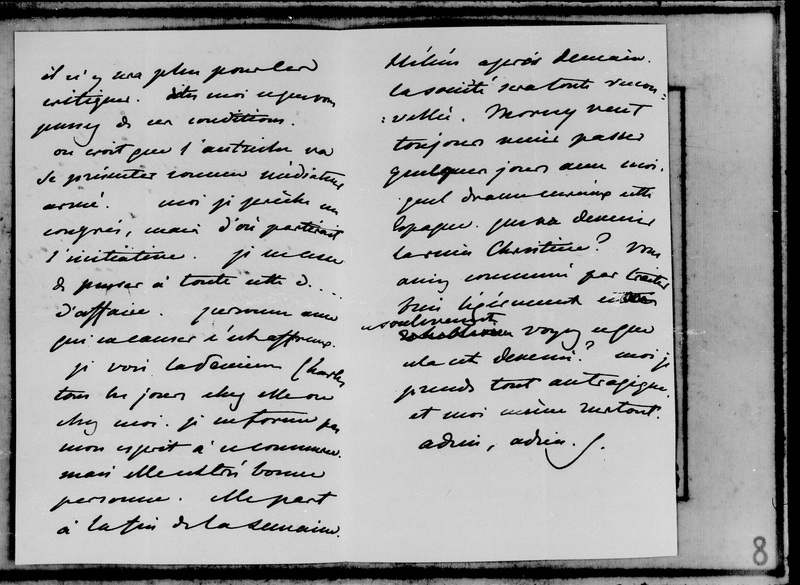 il n'y aura plus pour lord
critiquer. dites moi ce que vous
pensez de ces conditions.
on croit que l'autriche va
se présenter comme médiateur
armé. moi je prêche un
congrès, mais d'où partirait
l'initiative. je ne cesse
de penser à toute cette d...
d'affaire. personne avec
qui en causer c'est affreux.
je vois la
tous les jours chez elle ou
chez moi. je ne forme pas
mon esprit à ce commerce.
mais elle est très bonne
personne. elle part
à la fin de la semaine.
Hélène après demain.
la société sera toute renou=
=vellée. Morny veut
toujours venir passer
quelques jours avec moi.
quel drame curieux cette
Espagne. que va devenir
la reine Christine? Vous
aviez commencé par traiter
bien légèrement ce
soulèvement voyez ce que
cela est devenu? moi je
prends tout au tragique.
et moi même surtout.
adieu, adieu.
8